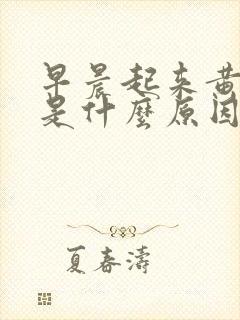 早晨起来黄
是什麼原因
夏春濤